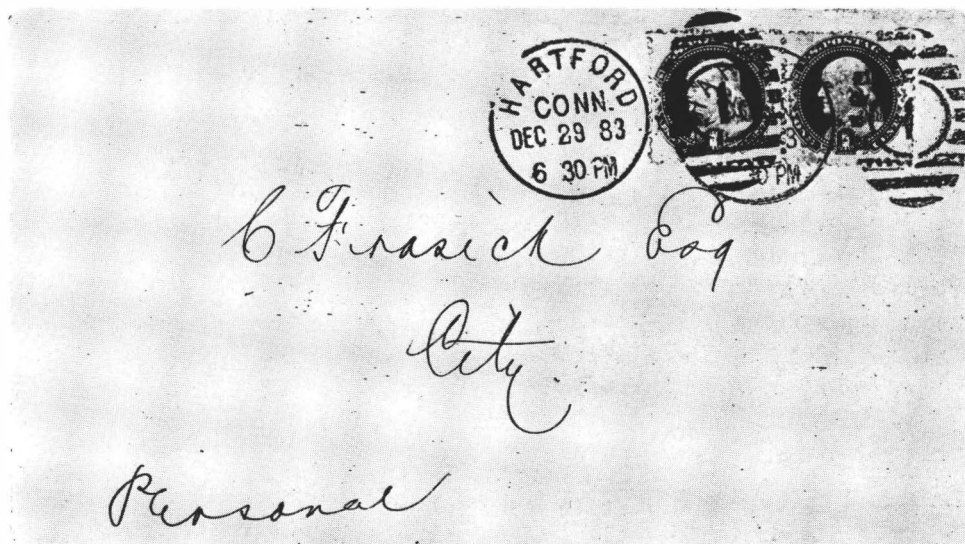 HARTFORD
CONN.
DEC 29 83
6 30 PM
0 PM
C Frasick Esq
City.
Personal